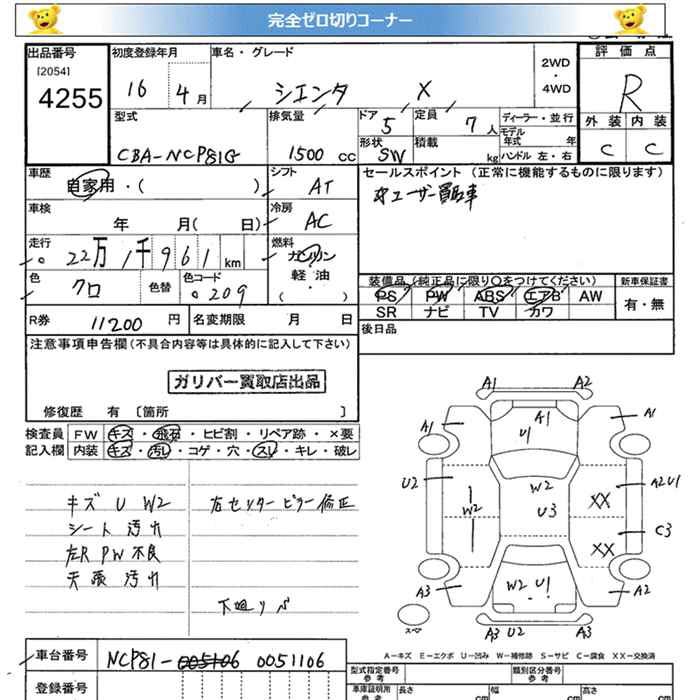 完全ゼロ切りコーナー
出品番号 初度登録年月 車名・グレード 2WD ・ 4WD 評価点
[2054]
4255 16 4月 シエンタ X R
型式 排気量 ドア 定員 ディーラー・並行 外装 内装
CBA-NCP81G 1500 CC 5 7人 モデル年式 年 C C
形状 SW 積載 kg ハンドル 左・右
車歴 自家用・( ) シフト AT セールスポイント (正常に機能するものに限ります)
ユーザー買取車
車検 年 月( 日) 冷房 AC
走行 22万1千961 km 燃料 ガソリン
軽・油
( ・ )
色 クロ 色替 色コード 209 装備品(純正品に限り○をつけてください) 新車保証書
PS PW ABS エアB AW 有・無
SR ナビ TV カワ
R券 11200 円 名変期限 月 日 後日品
注意事項申告欄(不具合内容等は具体的に記入して下さい)
ガリバー買取店出品
修復歴 有 [箇所 ]
検査員 FW キズ・飛石・ヒビ割・リペア跡・×要
記入欄 内装 キズ・汚レ・コゲ・穴・スレ・キレ・破レ
キズ U W2 右センターピラー修正
シート 汚れ
左R PW不良
天張 汚れ
下廻り
A1 A2
A1 A1 U1 A1
U2 W2 A2U1
W2 U3 XX
XX C3
A3 W2 U1 A2
スペア
A3 U2 A3
A-キズ E-エクボ U-凹み W-補修跡 S-サビ C-腐食 XX-交換済
車台番号 NCP81-0051106
型式指定番号 参考 類別区分番号 参考
登録番号 車庫証明用 参考 長さ cm 幅 cm 高さ cm